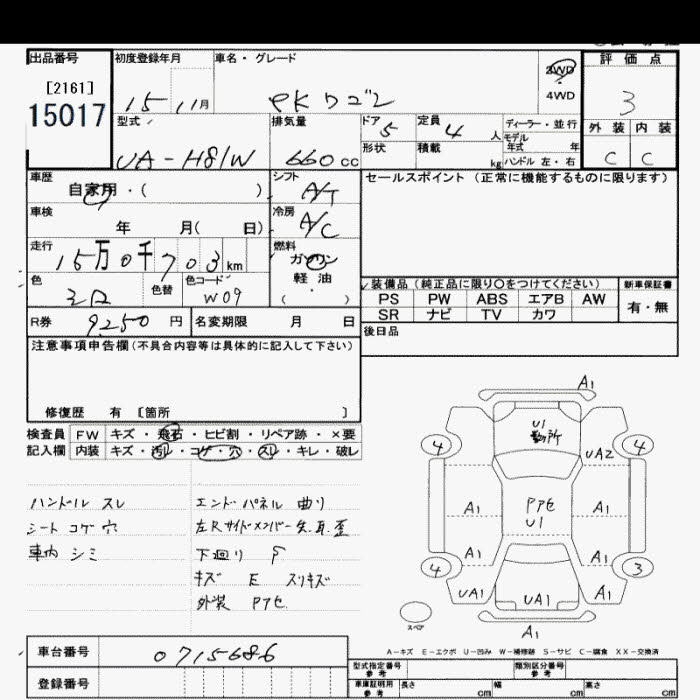 出品番号 初度登録年月 車名・グレード 2WD 評価点
[2161] 4WD
15017 15 11月 PKワゴン 3
型式 排気量 ドア 定員 ディーラー・並行 外装 内装
5 4人 モデル年式 年
UA-H81W 660cc 形状 積載 kg ハンドル 左・右 C C
車歴 シフト セールスポイント(正常に機能するものに限ります)
自家用・( ) A/T
車検 冷房
年 月( 日) A/C
走行 燃料
15万0千703km ガソリン
色 色替 色コード 軽油
シロ W09 ( ) 装備品(純正品に限り〇をつけてください) 新車保証書
PS PW ABS エアB AW 有・無
R券 9,250円 名変期限 月 日 SR ナビ TV カワ
注意事項申告欄(不具合内容等は具体的に記入して下さい) 後日品
修復歴 有 [箇所 ]
検査員 FW キズ・飛石・ヒビ割・リペア跡・×要
記入欄 内装 キズ・汚レ・コゲ・穴・スレ・キレ・破レ
A1
U1
4 4
UA2
ハンドル スレ エンドパネル 曲り
A1 アセ A1
シート コゲ 穴 U1
車内 シミ 下廻り S
A1 A1
4 3
キズ E スリキズ
UA1 UA1 A1
外装 アセ
スペア
A1
A-キズ E-エクボ U-凹み W-補修跡 S-サビ C-腐食 XX-交換済
車台番号 0715686 型式指定番号 参考 類別区分番号 参考
登録番号 車庫証明用 参考 長さ cm 幅 cm 高さ cm